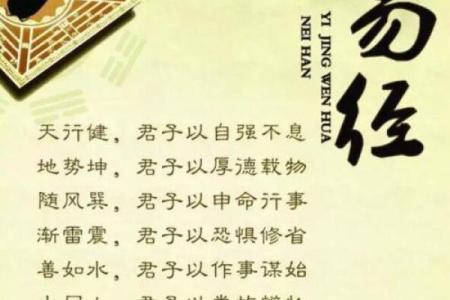 经
YI JING WEN HUA
NEI HAN
天行健，君子以自强不息
地势坤，君子以厚德载物
随风巽，君子以申命行事
渐雷震，君子以恐惧修省
善如水，君子以作事谋始